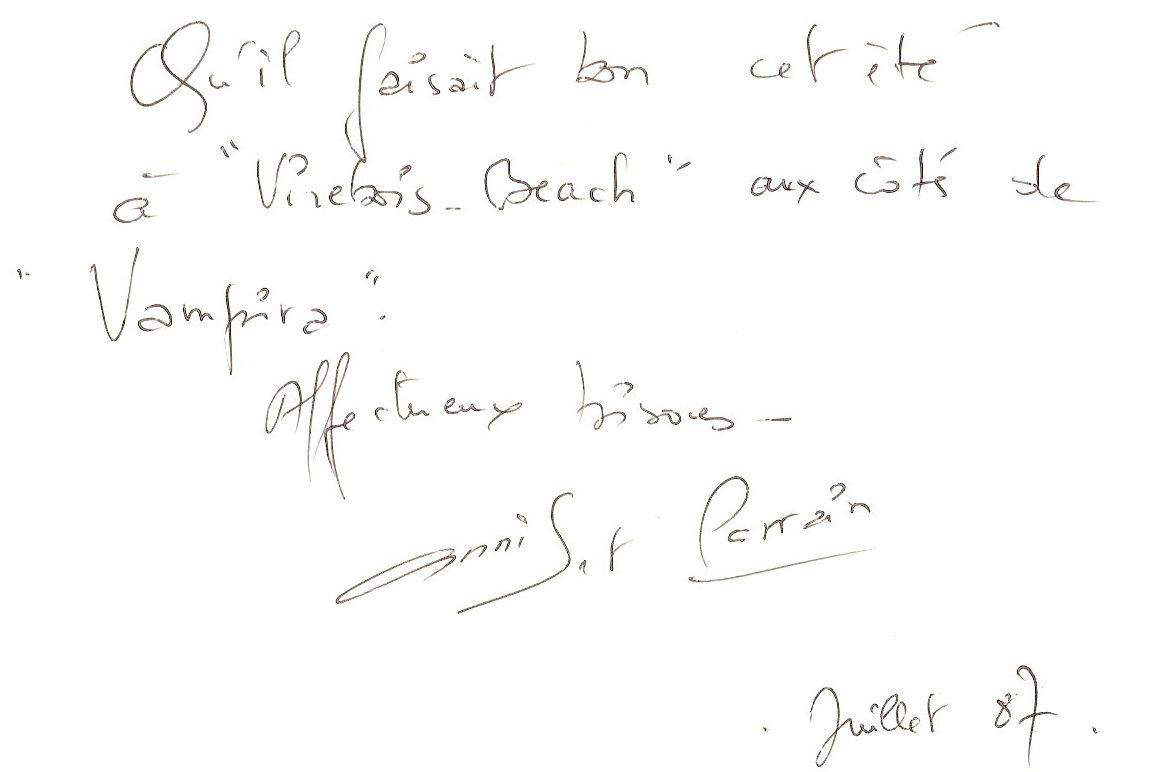 Qu'il faisait bon cet été
à "Virebois-Beach" aux côté de
"Vampira".
Affectueux bisous -
et Parrain
. Juillet 87 .